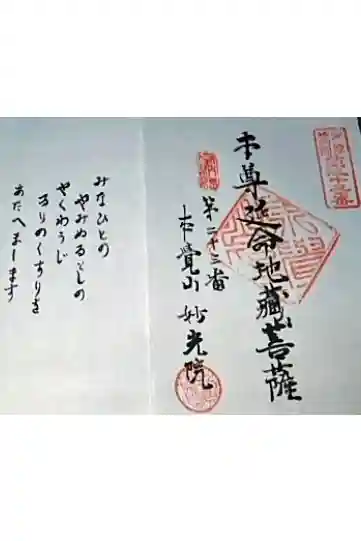 本尊延命地藏菩薩
第二十三番
本覺山 妙光院
みなひとの
やみぬるとしの
やくわうじ
るりのくすりを
あたへまします